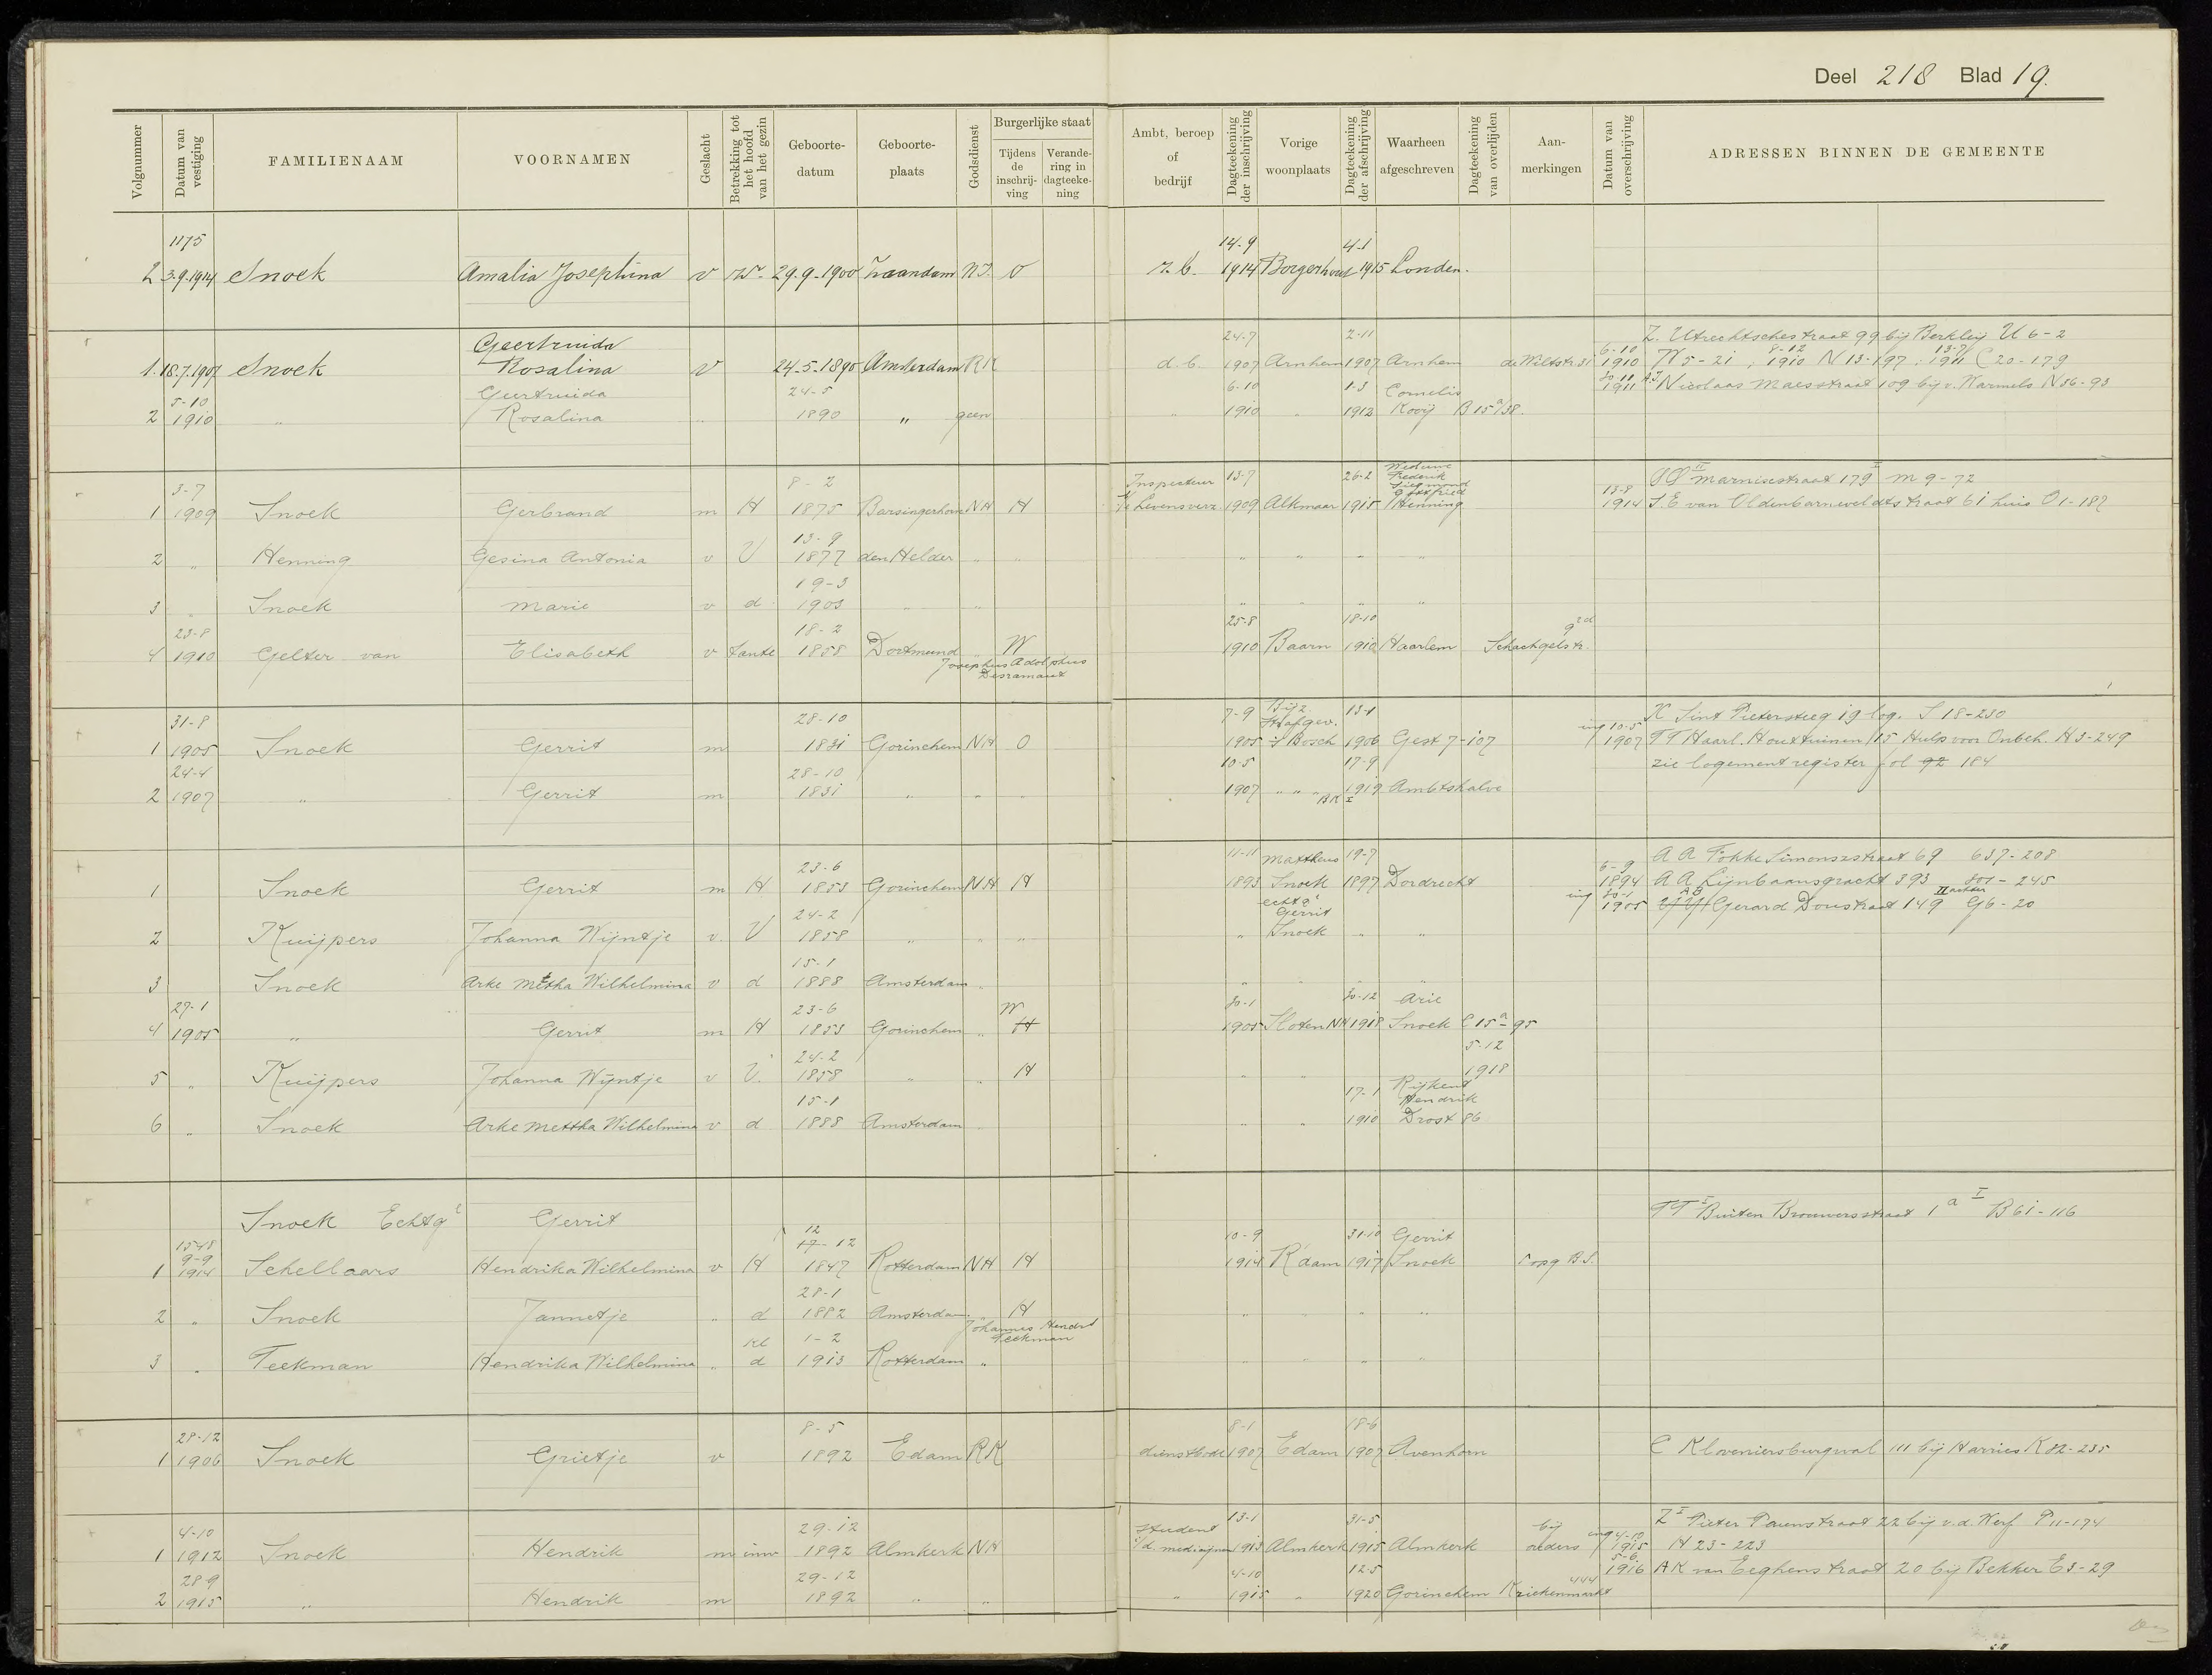 Deel 218 Blad 19.
Volgnummer Datum van vestiging FAMILIENAAM VOORNAMEN Geslacht Betrekking tot het hoofd van het gezin Geboorte-datum Geboorte-plaats Godsdienst Burgerlijke staat Tijdens de inschrij-ving Verande-ring in dagteeke-ning Ambt, beroep of bedrijf Dagteekening der inschrijving Vorige woonplaats Dagteekening der afschrijving Waarheen afgeschreven Dagteekening van overlijden Aan-merkingen Datum van overschrijving ADRESSEN BINNEN DE GEMEENTE
1175 14-9 4-1
2 3.9.1914 Snoek Amalia Josephina v 29.9.1900 Zaandam N.I. O z.b. 1914 Borgerhout 1915 Londen.
Geertruida 24-7 2-11 Z. Utrechtschestraat 99 bij Berkleij U 6-2
1. 18.7.1907 Snoek Rosalina v 24-5-1890 Amsterdam RK d.b. 1907 Arnhem 1907 Arnhem de Wiltstr. 31 6-10 1910 W 5-21, 8-12 1910 N 13-197; 13-7 1911 C 20-179
Geertruida 24-5 6-10 1-3 Cornelis 30-11 1911 Nicolaas Maesstraat 109 bij v. Warmels N 36-93
2 5-10 1910 " Rosalina " 1890 " geen " 1910 " 1912 Kooij B 15 a/38.
3-7 8-2 Inspecteur 13-7 26-2 Weduwe Frederik Siegmond Gottfried Marnixstraat 179 M 9-72
1 1909 Snoek Gerbrand m H 1875 Barsingerhorn NH H Levensverz. 1909 Alkmaar 1915 Henning 13-8 1914 J.E van Oldenbarneveldtstraat 61 huis O 1-187
13-9
2 " Henning Gesina Antonia v V 1877 den Helder " " " " " "
19-3
3 " Snoek Marie v d 1903 " " " " " "
23-8 18-2 25-8 18-10
4 1910 Gelder van Elisabeth v tante 1858 Dortmund " W 1910 Baarn 1910 Haarlem Schachgelstr. 9 rd
Josephus Adolphus Desramaut
31-8 28-10 7-9 Bijz. Strafgev. 13-1 K Sint Pietersteeg 19 log. S 18-230
1 1905 Snoek Gerrit m 1831 Gorinchem NH O 1905 's Bosch 1906 Gest 7-107 ing 10-5 1907 TT Haarl. Houttuinen 15 Hulp voor Onbeh. H 3-249
24-4 28-10 10-5 17-9 zie logement register fol 92 184
2 1907 " Gerrit m 1831 " " " 1907 " " 1919 Ambtshalve
BR I
23-6 11-11 Mattheus 19-7 AA Fokke Simonszstraat 69 637-208
1 Snoek Gerrit m H 1853 Gorinchem NH H 1893 Snoek 1897 Dordrecht 6-9 1894 AA Lijnbaansgracht 393 - 245
24-2 echtge Gerrit ing 30-1 1905 AB Gerard Doustraat 149 II achter G 6-20
2 Kuijpers Johanna Wijntje v. V 1858 " " " " Snoek " "
15-1
3 Snoek Arke Mettha Wilhelmina v d 1888 Amsterdam " " " " "
27-1 23-6 W 30-1 30-12 Arie
4 1905 " Gerrit m H 1853 Gorinchem " H 1905 Sloten NH 1918 Snoek C 15 a-95
24-2 5-12
5 " Kuijpers Johanna Wijntje v V. 1858 " " H " " 1918
15-1 17-1 Rijkent Hendrik
6 " Snoek Arke Mettha Wilhelmina v d 1888 Amsterdam " " " 1910 Drost 86
Snoek Echtge Gerrit TT I Buiten Brouwersstraat 1 a I B 61-116
1548 9-9 12 17-12 10-9 31-10 Gerrit
1 1914 Schellaars Hendrika Wilhelmina v H 1847 Rotterdam NH H 1914 R'dam 1917 Snoek
28-1
2 " Snoek Jannetje " d 1882 Amsterdam " H " " " "
Johannes Hendrt Teekman
kl 1-2
3 " Teekman Hendrika Wilhelmina " d 1913 Rotterdam " " " " "
28-12 8-5 8-1 18-6
1 1906 Snoek Grietje v 1892 Edam RK dienstbode 1907 Edam 1907 Avenhorn C Kloveniersburgwal 111 bij Harries K 82-235
4-10 29-12 student 13-1 31-5 bij Z I Pieter Pauwstraat 22 bij v.d. Werf P 11-174
1 1912 Snoek Hendrik m inw 1892 Almkerk NH i/d. medicijnen 1913 Almkerk 1915 Almkerk ouders ing 4-10 1915 H 23-223
28-9 29-12 4-10 12-5 5-6 1916 AK van Eeghenstraat 20 bij Bekker E 3-29
2 1915 " Hendrik m 1892 " " " 1915 " 1920 Gorinchem Kriekenmarkt 444